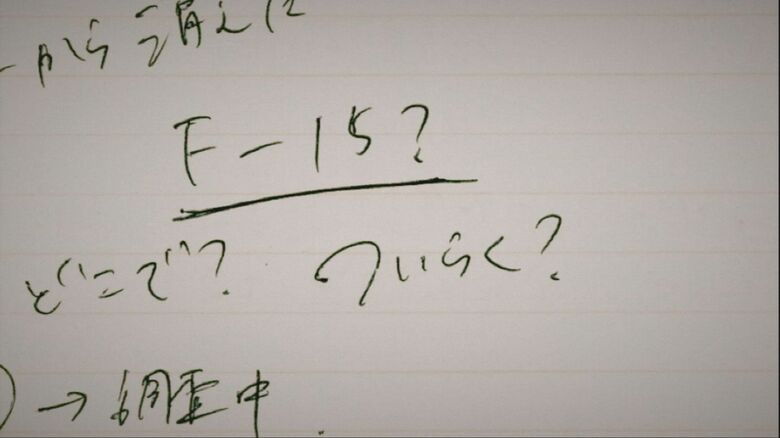 ーから消えた
F-15?
どこで? ついらく?
)→調査中